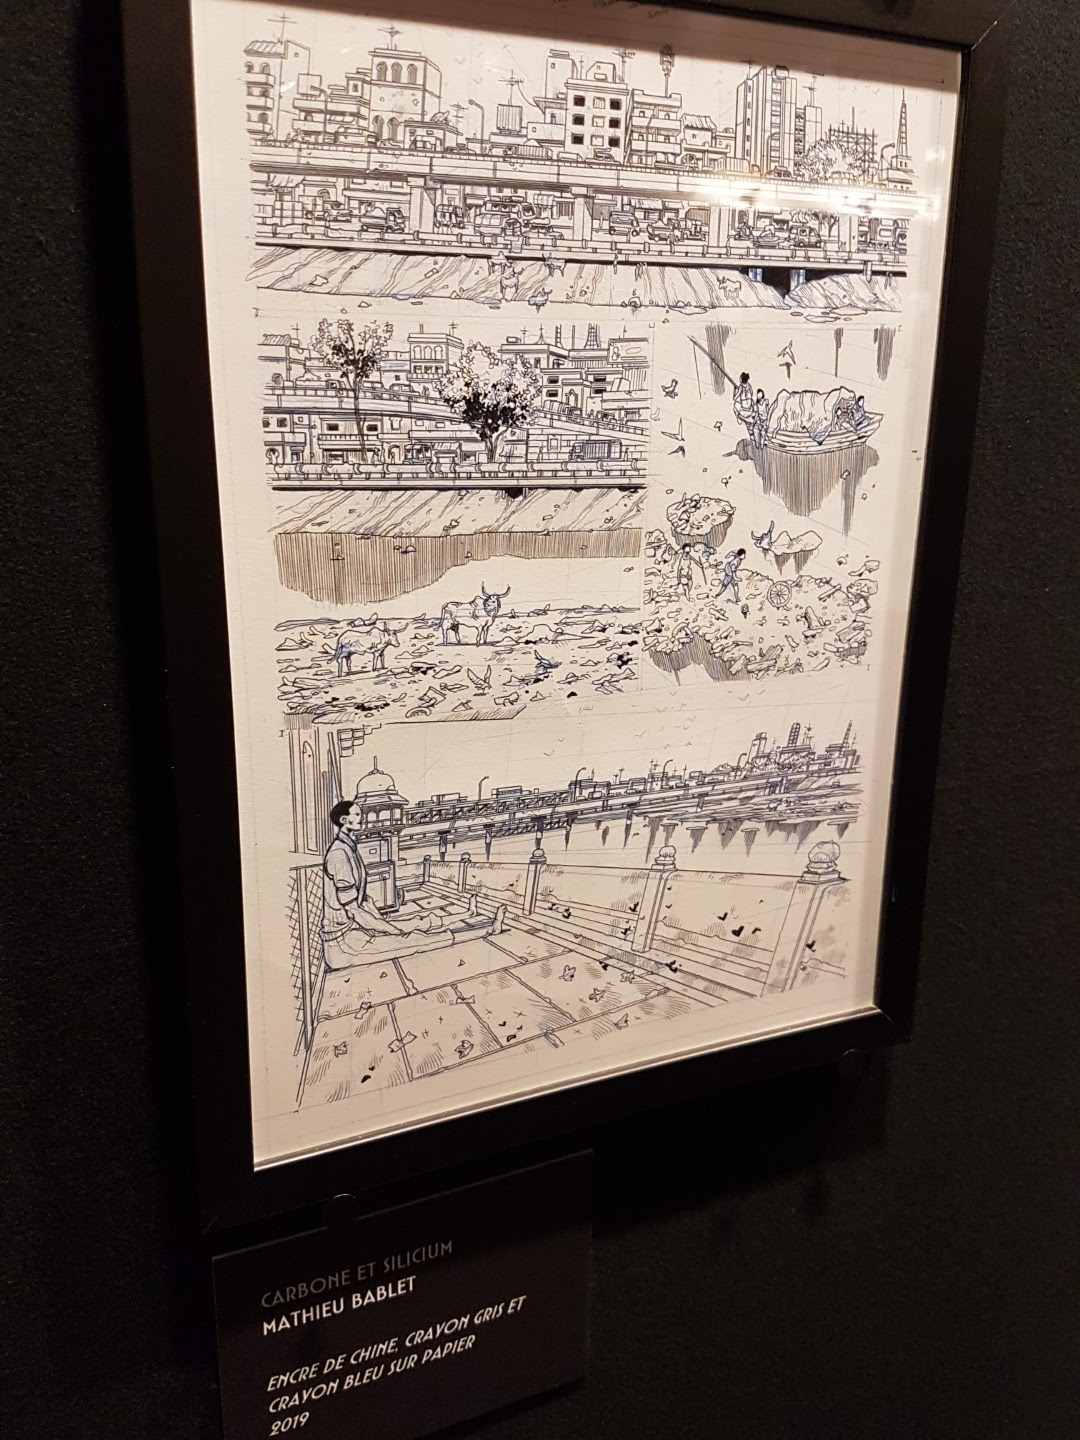 CARBONE ET SILICIUM
MATHIEU BABLET
ENCRE DE CHINE, CRAYON GRIS ET
CRAYON BLEU SUR PAPIER
2019